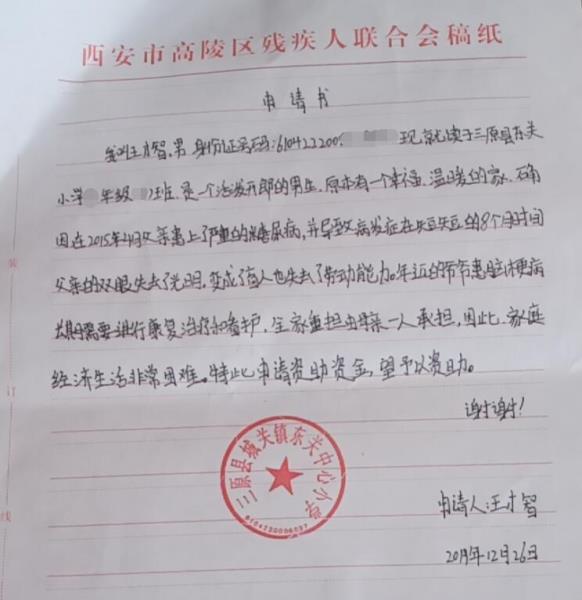 西安市高陵区残疾人联合会稿纸
申请书
我叫王才智,男 身份证号码:610422200 现就读于三原县东关
小学 年级 班.是一个活泼开朗的男生.原本有一个幸福、温暖的家.不确
因在2015年4月父亲患上了严重的糖尿病,并导致病发症在短短的8个月时间
父亲的双眼失去了光明.变成了盲人也失去了劳动能力.年近的爷爷患脑梗病
长期需要进行康复治疗和看护.全家重担由母亲一人承担,因此.家庭
经济生活非常困难。特此申请资助资金,望予以资助。
谢谢!
三原县城关镇东关中心小学
申请人:王才智
年12月26日
装
订
线